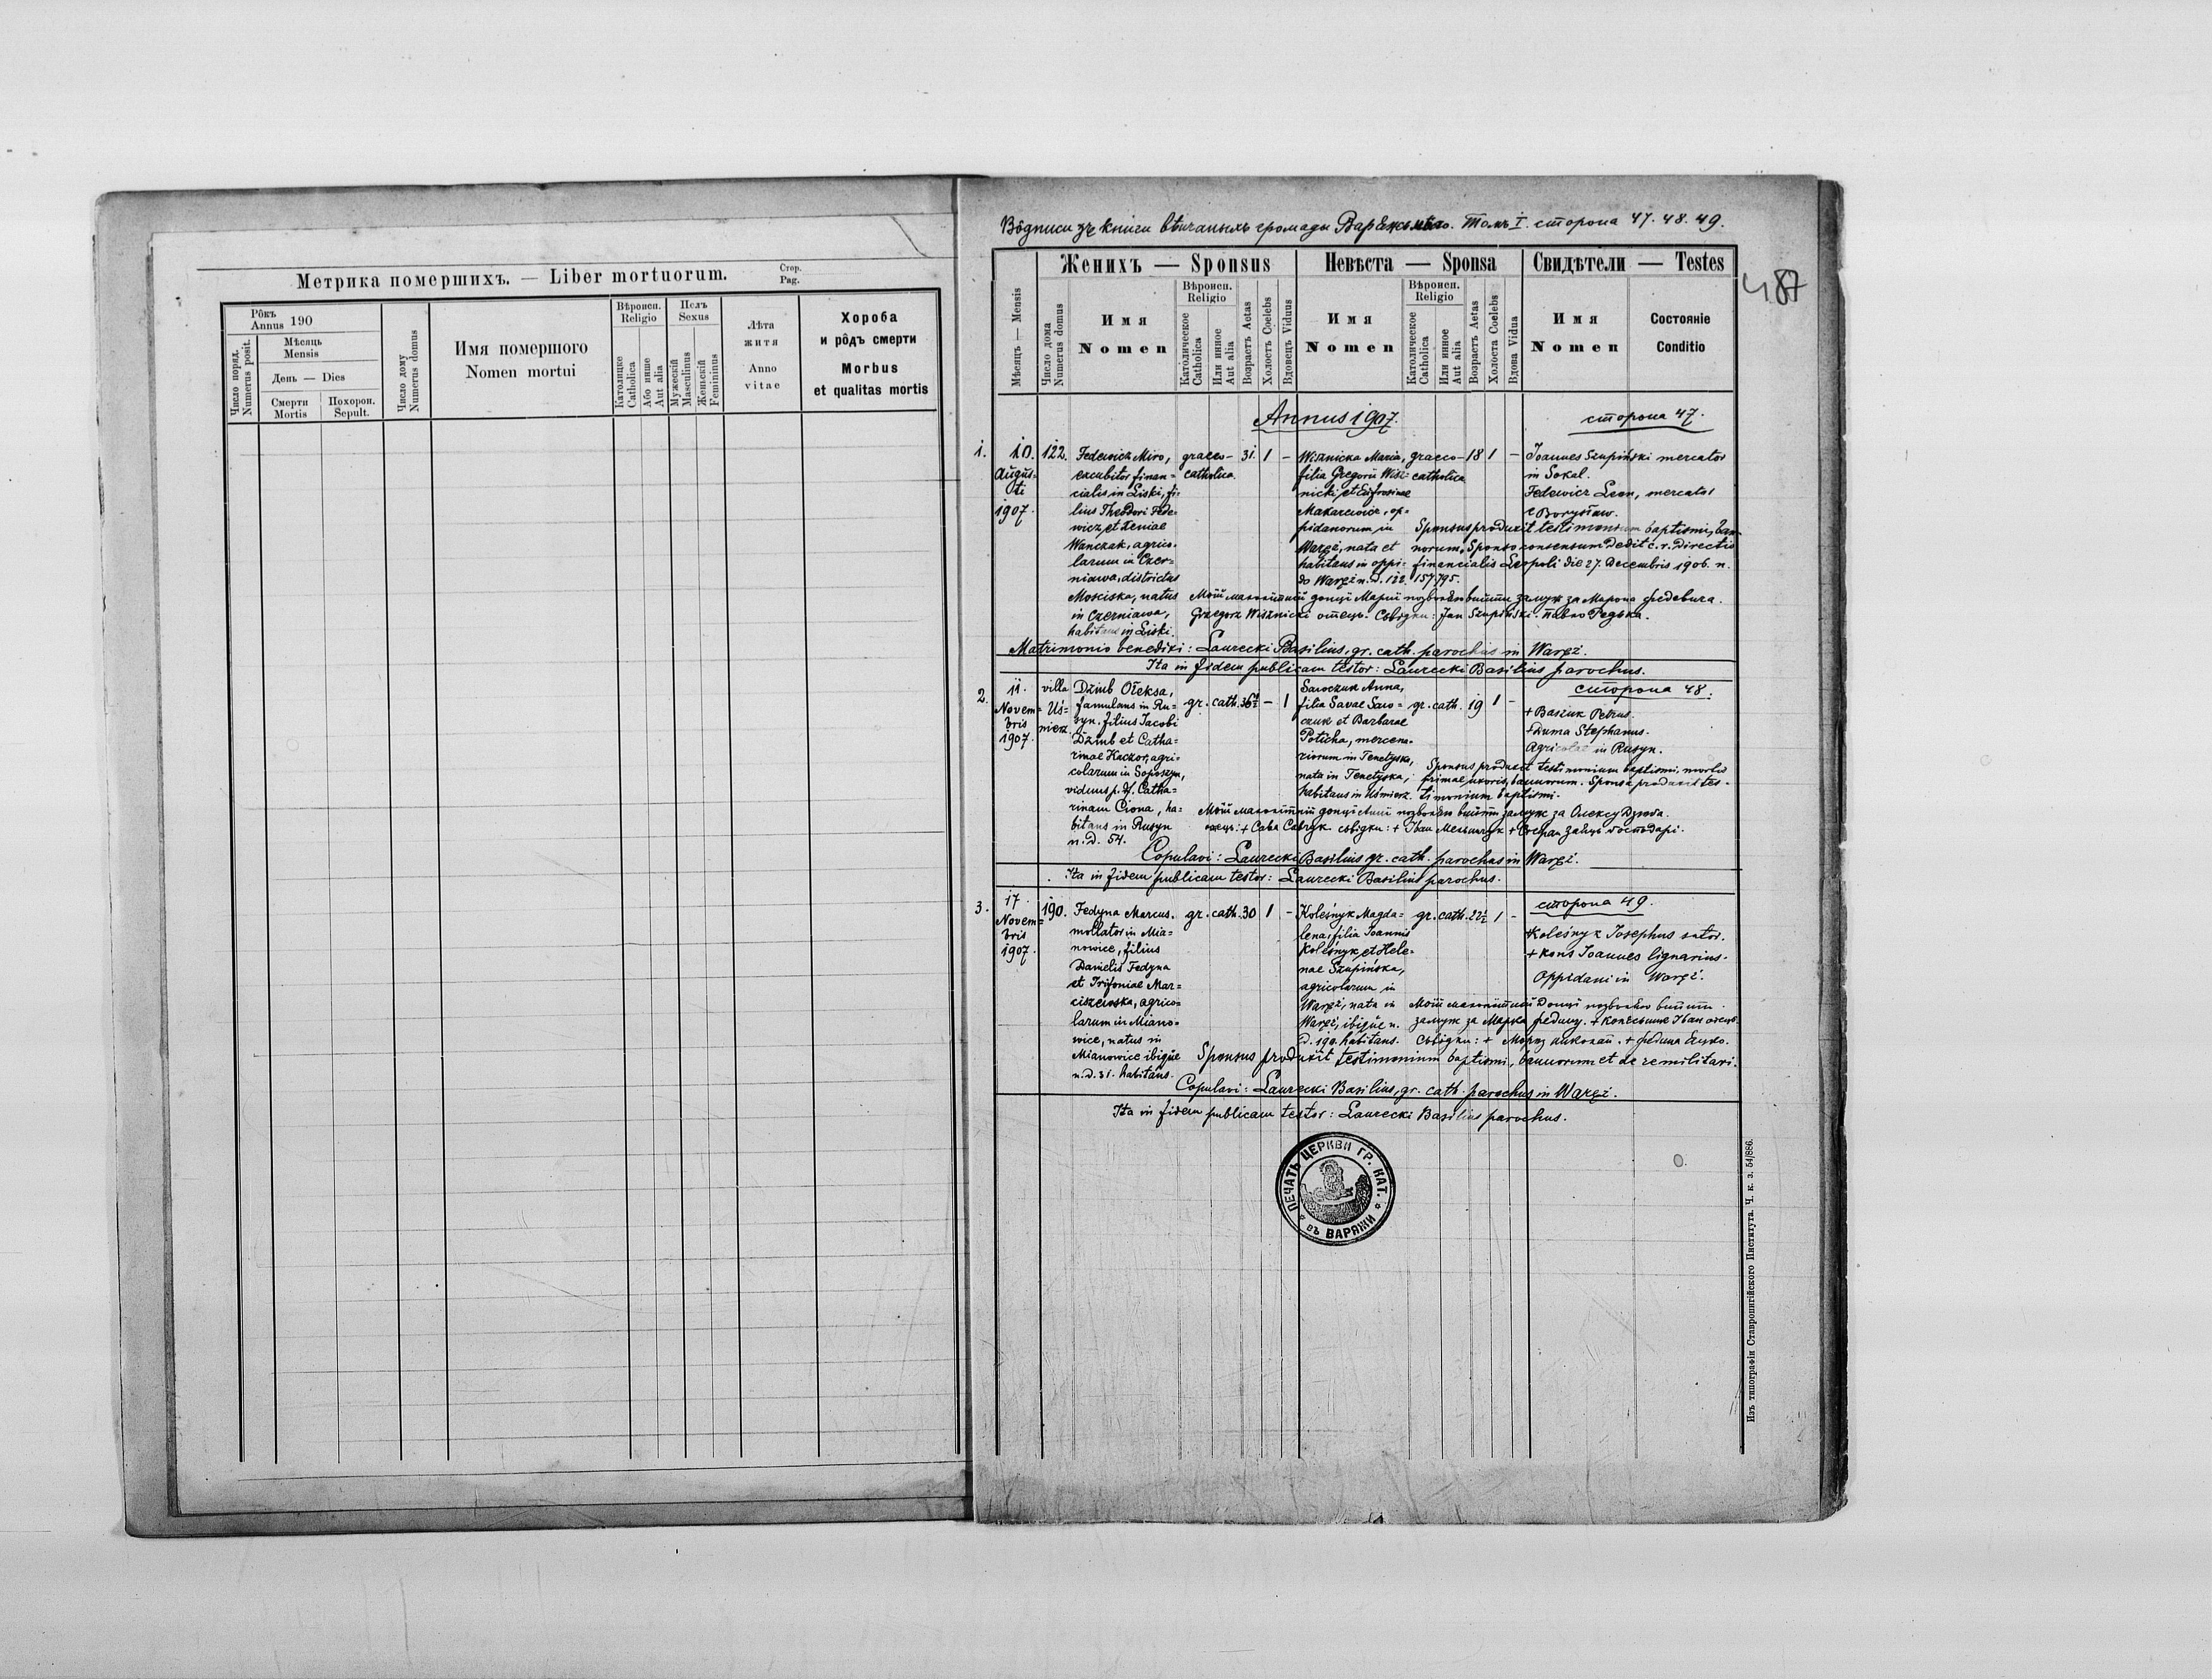 Метрика помершихъ. — Liber mortuorum.
Стор.
Pag.
Рôкъ
Annus 190
Число поряд.
Numerus posit.
Мѣсяць
Mensis
День — Dies
Смерти
Mortis
Похорон.
Sepult.
Число дому
Numerus domus
Имя помершого
Nomen mortui
Вѣроисп.
Religio
Католицке
Catholica
Або инше
Aut alia
Полъ
Sexus
Мужескій
Masculinus
Женьскій
Femininus
Лѣта
житя
Anno
vitae
Хороба
и рôдъ смерти
Morbus
et qualitas mortis
Вôдписи зъ книги вѣнчаныхъ громады Варяжъ мѣсто. Томъ I. сторона 47. 48. 49.
487
Женихъ — Sponsus
Невѣста — Sponsa
Свидѣтели — Testes
Мѣсяцъ — Mensis
Число дома
Numerus domus
Имя
Nomen
Вѣроисп.
Religio
Католическое
Catholica
Или инное
Aut alia
Возрастъ Aetas
Холостъ Coelebs
Вдовецъ Viduus
Имя
Nomen
Вѣроисп.
Religio
Католическое
Catholica
Или инное
Aut alia
Возрастъ Aetas
Холоста Coelebs
Вдова Vidua
Имя
Nomen
Состояніе
Conditio
Annus 1907.
сторона 47.
1.
10.
Augus-
ti
1907.
122.
Fedewicz Miro,
excubitor finan=
cialis in Liski, fi-
lius Theodori Fede-
wicz et Xeniae
Wanczak, agrico-
larum in Czer=
niawa, districtus
Mosciska, natus
in Czerniawa,
habitans in Liski.
graeco-
catholica.
31. 1 –
Wisznicka Maria,
filia Gregorii Wisz-
nicki et Eufrosinae
Makarewicz, op=
pidanorum in
Waręż, nata et
habitans in oppi-
do Waręż n. d. 122.
graeco-
catholica
18 1 –
Joannes Szupiński mercator
in Sokal.
Fedewicz Leon, mercator
e Borysław.
Sponsus produxit testimonium baptismi, ban-
norum. Sponso consensum dedit c. r. Directio
financialis Leopoli die 27. Decembris 1906. n.
157.795.
Моїй малолїтнїй донцї Марії позволяю вийти замуж за Мирона Федевича.
Grzegorz Wisznicki отець. Сьвідки: Jan Szupiński. Павло Редька.
Matrimonio benedixi: Laurecki Basilius, gr. cath. parochus in Waręż.
Ita in fidem publicam testor: Laurecki Basilius parochus.
2.
11.
Novem=
bris
1907.
villa
Uś-
mierz
Dziub Ołeksa,
famulans in Ru-
syn, filius Jacobi
Dziub et Catha=
rinae Kaczor, agri=
colarum in Soposzyn,
viduus p. d. Catha=
rinam Ciona, ha=
bitans in Rusyn
n. d. 54.
gr. cath. 36½ – 1
Sawczuk Anna,
filia Savae Saw=
czuk et Barbarae
Poticha, mercena-
riorum in Tenetyska,
nata in Tenetyska,
habitans in Uśmierz.
gr. cath. 19 1 –
сторона 48.
+ Basiuk Petrus.
+ Duma Stephanus.
Agricolae in Rusyn.
Sponsus produxit testimonium baptismi, mortis
primae uxoris, bannorum. Sponsa produxit tes-
timonium baptismi.
Моїй малолїтнїй донцї Аннї позволяю вийти замуж за Олексу Дзюба.
отець: + Сава Савчук. сьвідки: + Іван Мельничук + Стефан Заяць господарі.
Copulavi: Laurecki Basilius gr. cath. parochus in Waręż.
Ita in fidem publicam testor: Laurecki Basilius parochus.
3.
17.
Novem=
bris
1907.
190.
Fedyna Marcus.
mollator in Mia-
nowice, filius
Danielis Fedyna
et Trifoniae Mar=
ciszewska, agrico=
larum in Miano=
wice, natus in
Mianowice ibique
n. d. 31. habitans.
gr. cath. 30 1 –
Koleśnyk Magda=
lena, filia Joannis
Koleśnyk et Hele-
nae Szupińska,
agricolarum in
Waręż, nata in
Waręż, ibique n.
d. 190. habitans.
gr. cath. 22½ 1 –
сторона 49.
+ Koleśnyk Josephus sutor.
+ Kons Joannes lignarius.
Oppidani in Waręż.
Моїй малолїтнїй донцї позволяю вийти
замуж за Марка Федину. + Колєсьник Іван отець.
Сьвідки: + Мороз Николай. + Федина Гнько.
Sponsus produxit testimonium baptismi, bannorum et de re militari.
Copulavi: Laurecki Basilius, gr. cath. parochus in Waręż.
Ita in fidem publicam testor: Laurecki Basilius parochus.
ПЕЧАТЬ ЦЕРКВИ ГР. КАТ.
въ ВАРЯЖИ
Изъ типографіи Ставропигійского Института. Ч. к. з. 54/886.